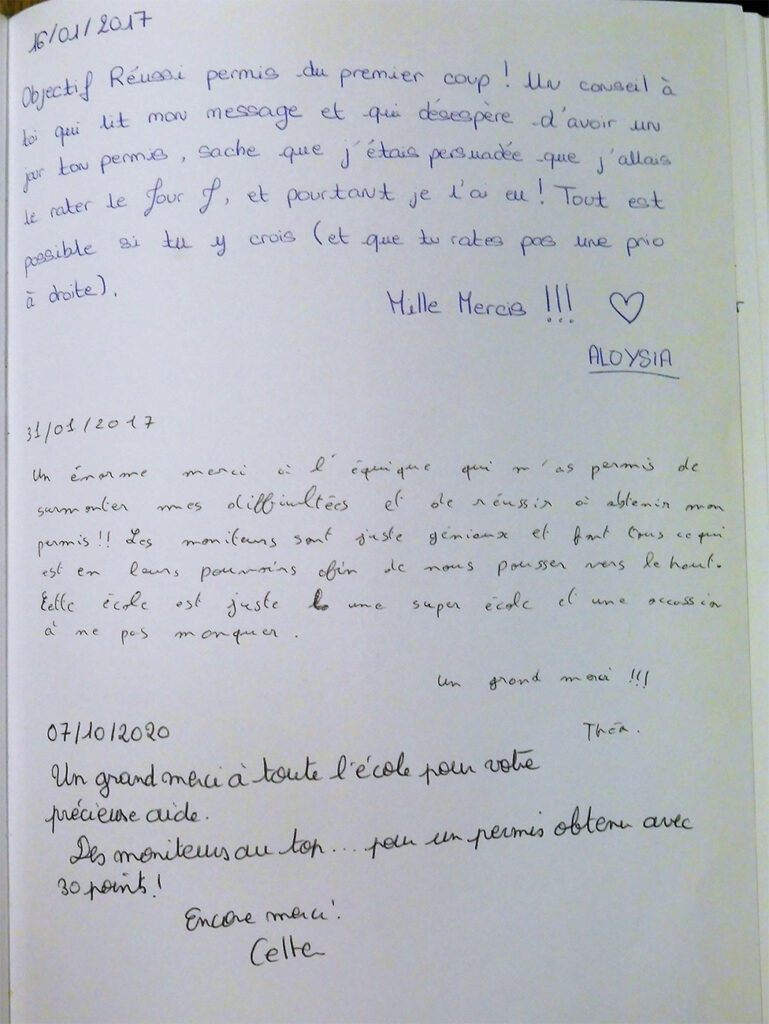 16/01/2017
Objectif Réussi permis du premier coup ! Un conseil à
toi qui lit mon message et qui désespère d'avoir un
jour ton permis, sache que j'étais persuadée que j'allais
le rater le Jour J, et pourtant je l'ai eu ! Tout est
possible si tu y crois (et que tu rates pas une prio
à droite).
Mille Mercis !!! ♡
ALOYSIA
31/01/2017
Un énorme merci à l'équique qui m'as permis de
surmonter mes difficultées et de réussir à obtenir mon
permis !! Les moniteurs sont juste géniaux et font tous ce qui
est en leurs pouvoirs afin de nous pousser vers le haut.
Cette école est juste une super école et une occassion
à ne pas manquer.
Un grand merci !!!
Théa.
07/10/2020
Un grand merci à toute l'école pour votre
précieuse aide.
Des moniteurs au top... pour un permis obtenu avec
30 point !
Encore merci !